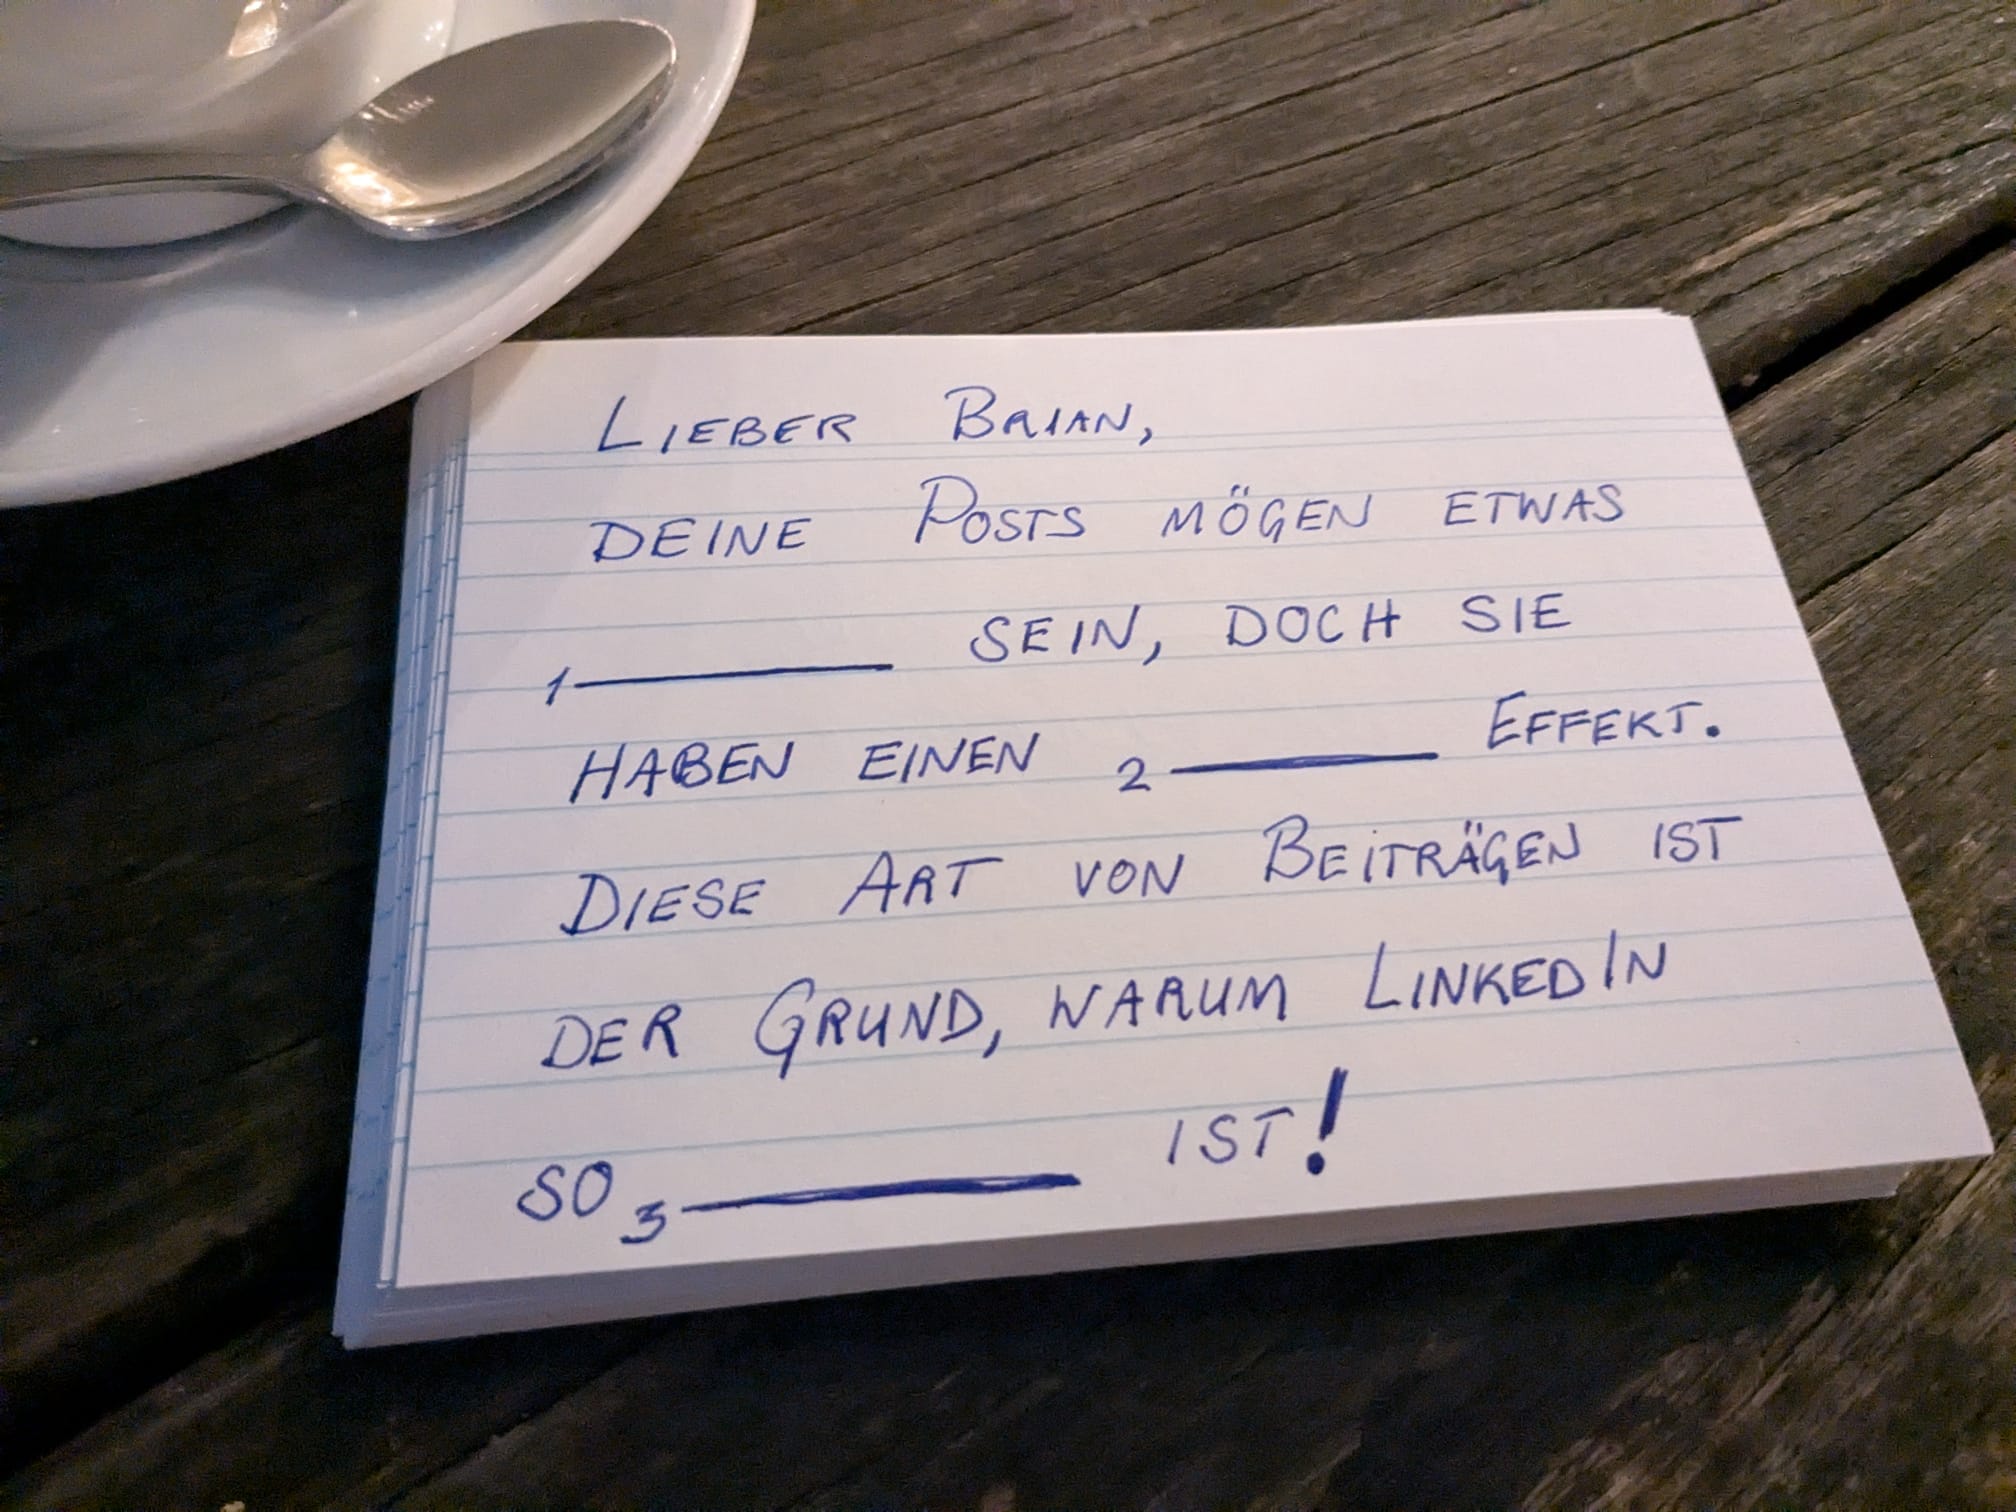 LIEBER BRIAN,
DEINE POSTS MÖGEN ETWAS
1 ________ SEIN, DOCH SIE
HABEN EINEN 2 ________ EFFEKT.
DIESE ART VON BEITRÄGEN IST
DER GRUND, WARUM LINKEDIN
SO 3 ________ IST!